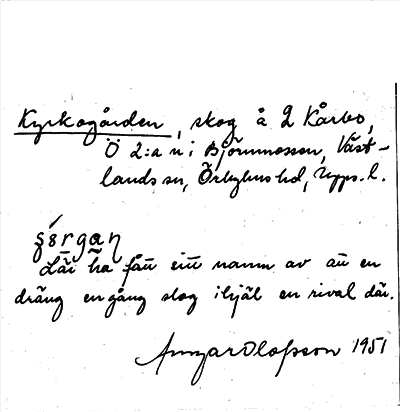 Kyrkogården, skog å 2 Kårbo,
Ö 2:a n i Björnmossen, Väst-
lands sn, Örbyhus hd, Upps. l.
Lär ha fått sitt namn av att en
dräng en gång slog ihjäl en rival där.
Ansgar Olofsson 1951